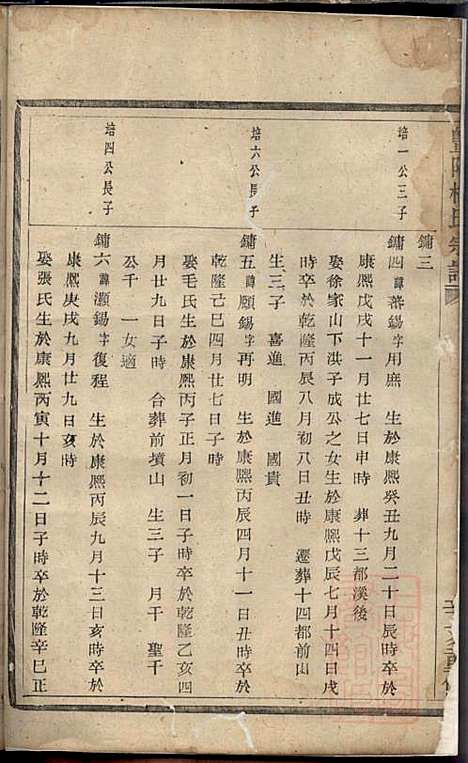 暨陽楊氏宗譜
鏞三
培一公三子
鏞四諱蕃錫字用庶 生於康熙癸丑九月二十日辰時卒於
康熙戊戌十一月廿七日申時 葬十三都漢後
娶徐家山下洪子成公之女生於康熙戊辰七月十四日戌
時卒於乾隆丙辰八月初八日丑時 遷葬十四都前山
生三子 喜進 國進 國貴
培六公長子
鏞五諱願錫字再明 生於康熙丙辰四月十一日丑時卒於
乾隆己巳四月廿七日子時
娶毛氏生於康熙丙子正月初一日子時卒於乾隆乙亥四
月廿九日子時 合葬前墳山 生三子 月千 聖千
公千 一女適
培四公長子
鏞六諱灝錫字復程 生於康熙丙辰九月十三日亥時卒於
康熙庚戌九月廿九日亥時
娶張氏生於康熙丙寅十月十二日子時卒於乾隆辛巳正